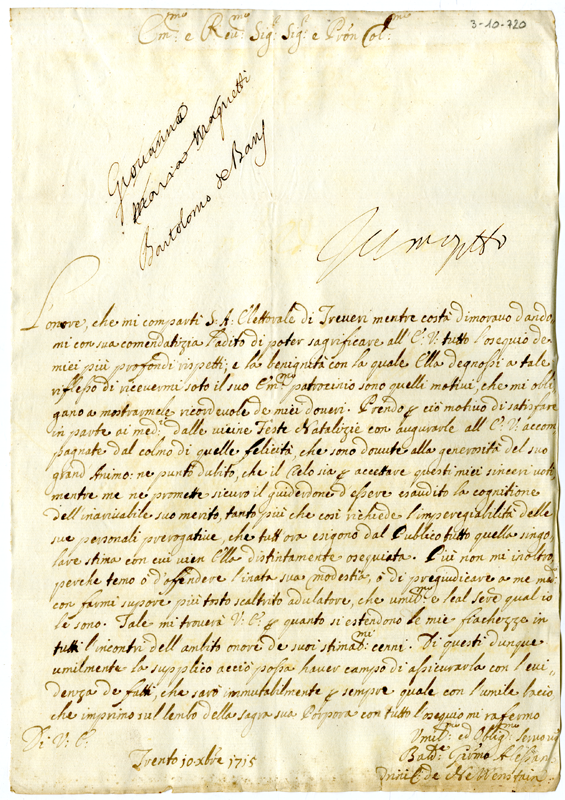 3-10-720
Em:mo e Reu:mo Sig:r Sig:r e Pron Col:mo
Giovanna
Maria Maquetti
Bartolomo de Bary
Lonore, che mi comparti S. A: Elettorale di Treveri mentre costi dimoravo dando,
mi con sua comendatizia l'adito di poter sagrificare all E: V: tutto l'osequio de
miei più profondi rispetti; e la benignità con la quale Ella degnossi a tale
riflesso di ricevermi soto il suo Em:mo patrocinio sono quelli motivi, che mi obli
gano a mostrarmele ricordevole de miei doveri. Prendo p ciò motivo di satisfare
in parte ai med:mi dalle vicine Feste Natalizie con augurarle all E: V: accom
pagnate dal colmo di quelle feliciti, che sono dovute alla generosità del suo
grand Animo: ne punto dubito, che il Celo sia p accettare questi miei sinceri voti
mentre me ne promette sicuro il guiderdone d'essere esaudito la cognitione
dell'inarivabile suo merito, tanto più che così richiede l'impregiabilità delle
sue personali prerogative, che tutt'ora esigono dal Publico tutto quella singo,
lare stima con cui vien Ella distintamente osequiata. Qui non mi inoltro,
perche temo o d'offendere l'inata sua modestia, o di pregiudicare a me med:mo
con farmi supore più tosto scaltrito adulatore, che umil:mo e leal serv:e qual io
le sono. Tale mi troverà V: E: p quanto si estendono le mie fiachezze in
tutti l'incontri dell'ambito onore de suoi stimab:mi cenni. Di questi dunque
umilmente la supplico acciò possa haver campo di assicurarla con l'evi,,
denza de fatti, che sarò immutabilmente p sempre quale con l'umile bacio
che imprimo sul lembo della sagra sua Porpora con tutto l'osequio mi rafermo
Di V: E:
Umil:mo ed Oblig:mo Servo
Trento 10 xbre 1715
Bald:e Girmo